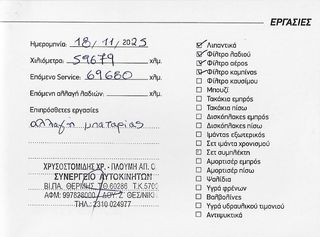 ΕΡΓΑΣΙΕΣ
Ημερομηνία: 18/11/2025
Χιλιόμετρα: 59679 χλμ.
Επόμενο Service: 69680 χλμ.
Επόμενη αλλαγή λαδιών: χλμ.
Επιπρόσθετες εργασίες
αλλαγη μπαταρίας
ΧΡΥΣΟΣΤΟΜΙΔΗΣ ΧΡ. - ΠΛΟΥΜΗ ΑΠ. Ο.
ΣΥΝΕΡΓΕΙΟ ΑΥΤΟΚΙΝΗΤΩΝ
ΒΙ.ΠΑ. ΘΕΡΜΗΣ, Τ.Θ. 60286 Τ.Κ. 5700
ΑΦΜ: 997628000 ΔΟΥ: Ζ' ΘΕΣ/ΝΙΚΗ
ΤΗΛ.: 2310 024977
Λιπαντικά
Φίλτρο λαδιού
Φίλτρο αέρος
Φίλτρο καμπίνας
Φίλτρο καυσίμου
Μπουζί
Τακάκια εμπρός
Τακάκια πίσω
Δισκόπλακες εμπρός
Δισκόπλακες πίσω
Ιμάντας εξωτερικός
Σετ ιμάντα χρονισμού
Σετ συμπλέκτη
Αμορτισέρ εμπρός
Αμορτισέρ πίσω
Ψαλίδια
Υγρά φρένων
Βαλβολίνες
Υγρό υδραυλικού τιμονιού
Αντιψυκτικό